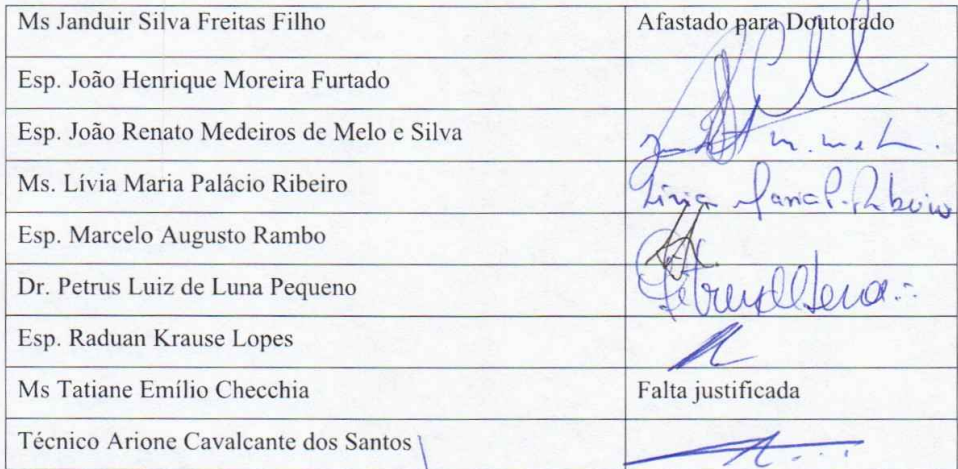 Ms Janduir Silva Freitas Filho Afastado para Doutorado
Esp. João Henrique Moreira Furtado
Esp. João Renato Medeiros de Melo e Silva
Ms. Lívia Maria Palácio Ribeiro Lívia Maria P. Ribeiro
Esp. Marcelo Augusto Rambo
Dr. Petrus Luiz de Luna Pequeno
Esp. Raduan Krause Lopes
Ms Tatiane Emílio Checchia Falta justificada
Técnico Arione Cavalcante dos Santos